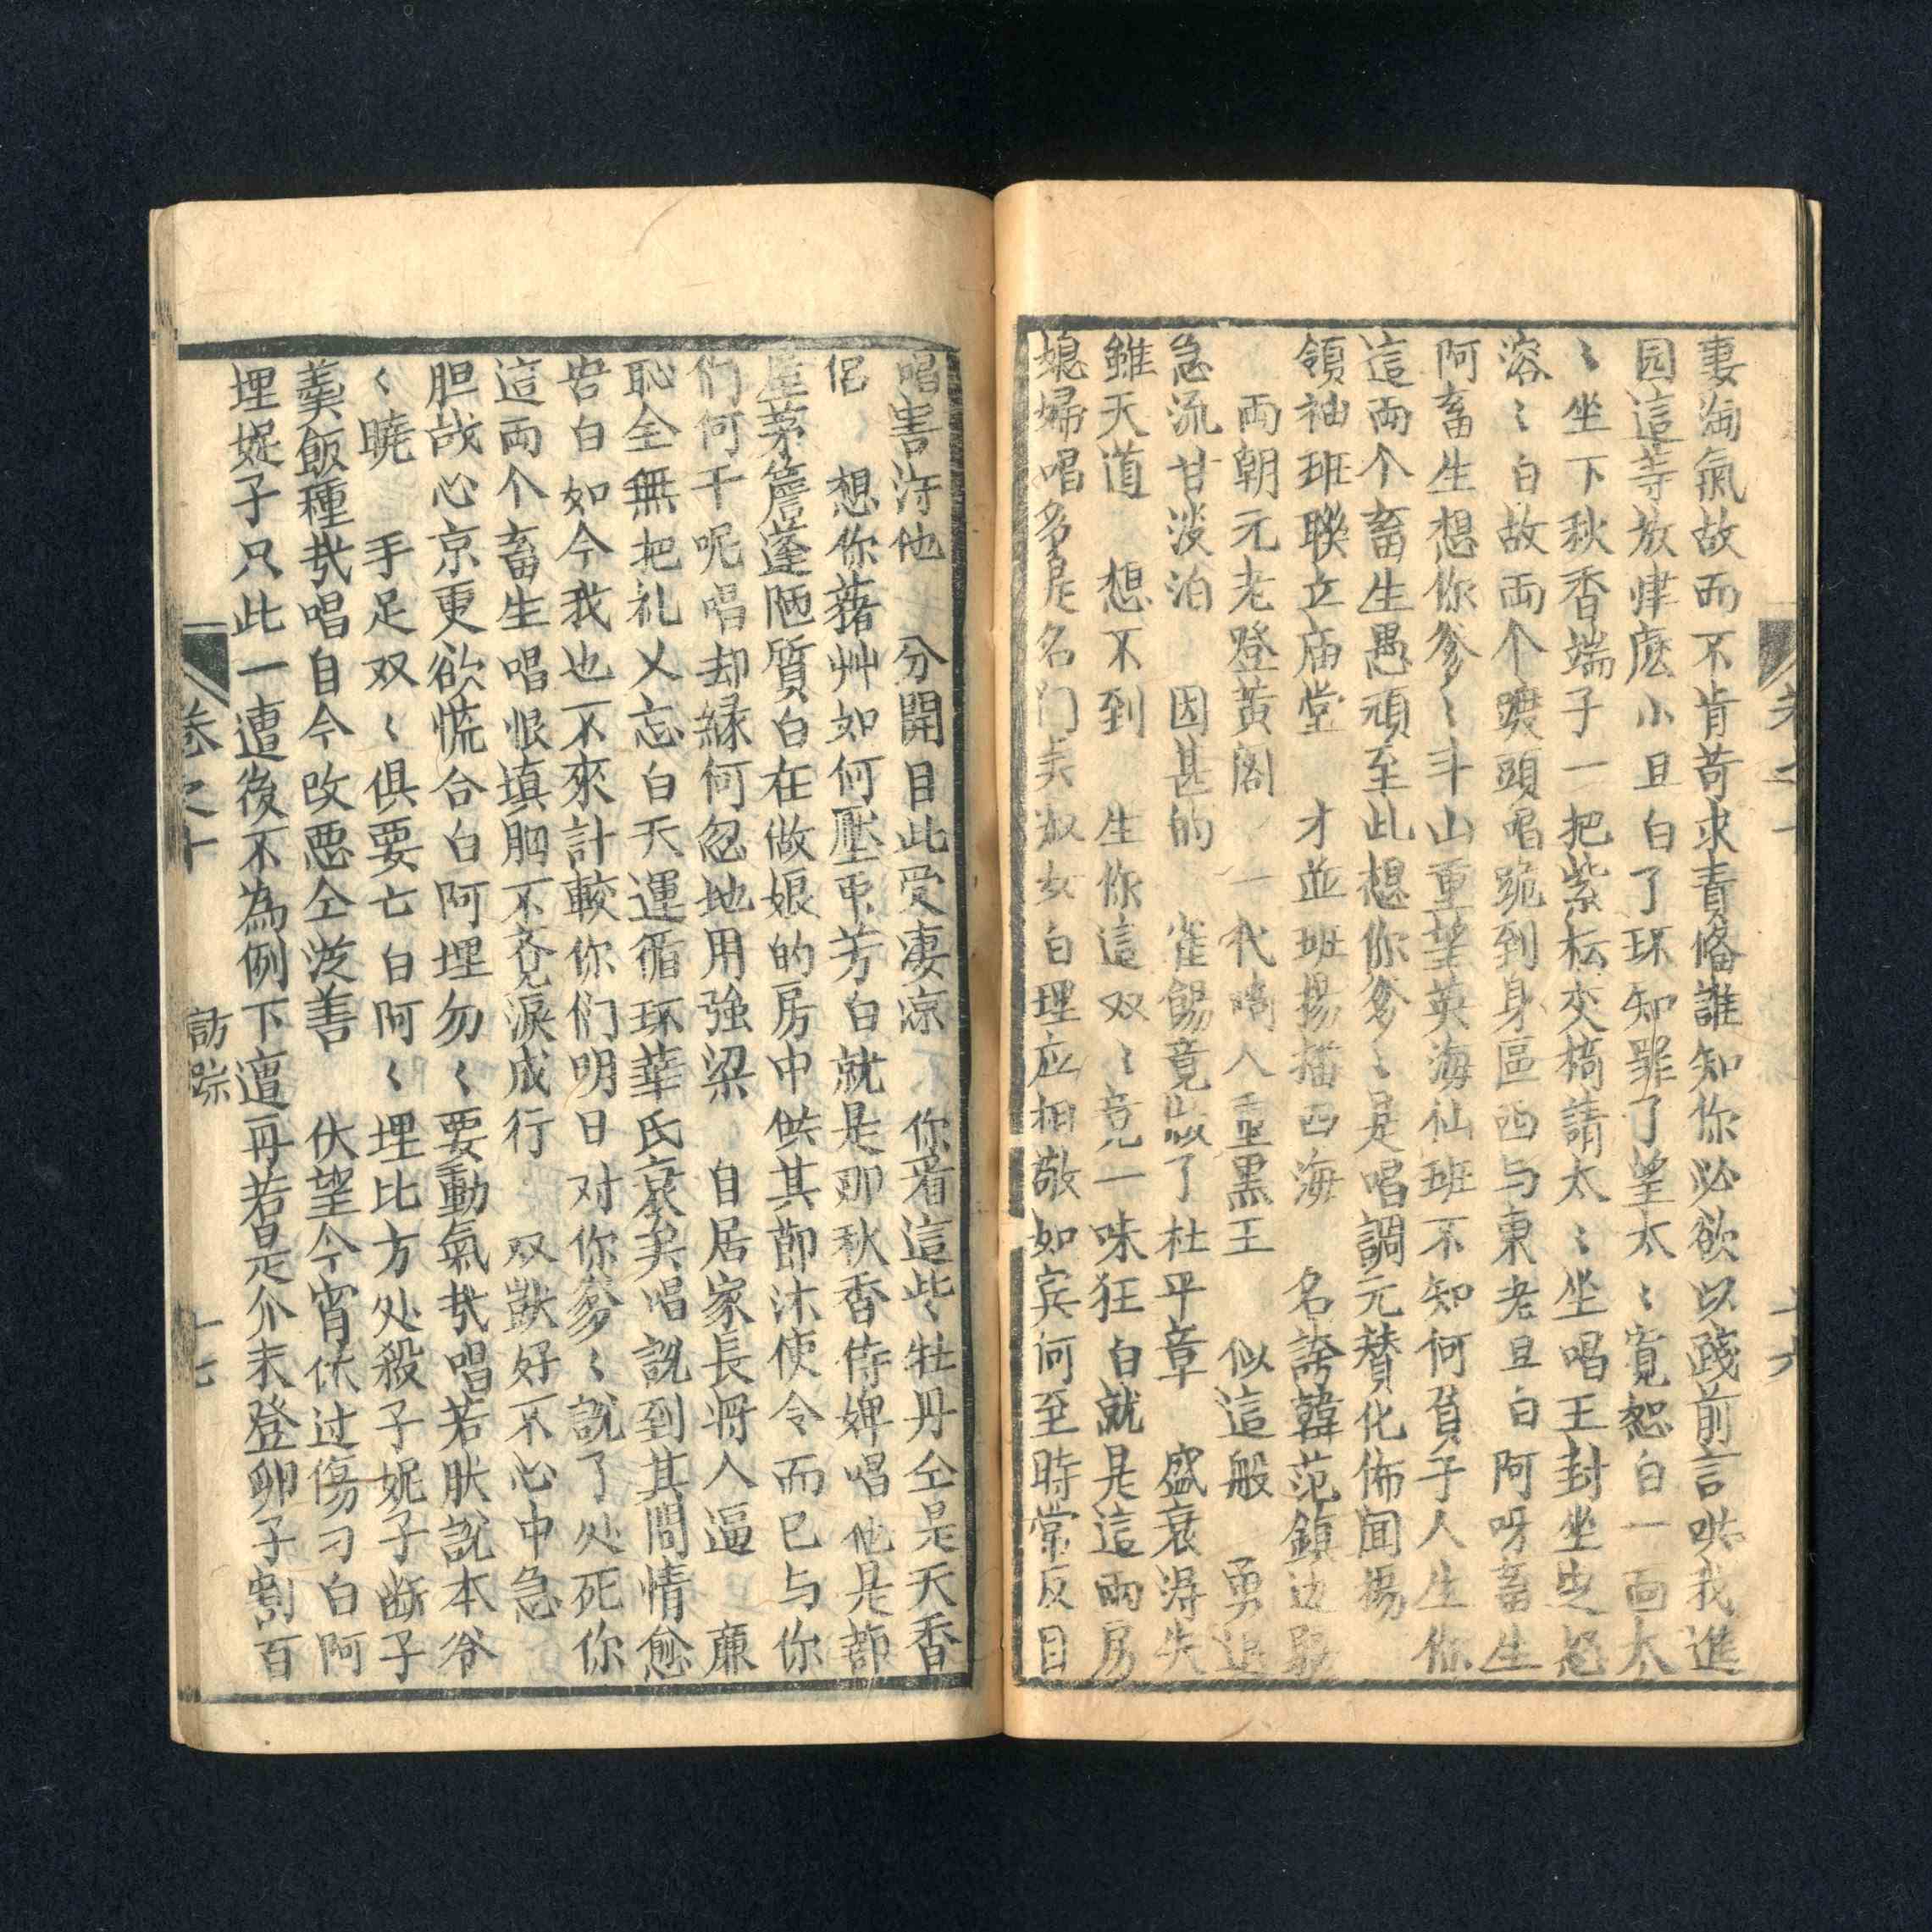 妻淘氣故而不肯苛求責俻誰知你必欲以踐前言哄我進
园這等放肆麽小旦白了环知罪了望太〻寬恕白一面太
〻坐下秋香端子一把紫枟交椅請太〻坐唱王封坐也怒
溶〻白故両个跪到身區西与東老旦白阿呀畜生
阿畜生想你爹〻斗山重望英海仙班不知何負子人生你
這両个畜生愚頑至此想你爹〻是唱調元賛化佈聞揚
領袖班聨立庙堂　才並班揚播四海　名誇韓范鎮边
両朝元老登黃閣　一代人　王　似這般　勇退
急流甘淡泊　因甚的　雀餳竟做了杜平章　盛衰得失
雖天道　想不到　生你這双〻竟一味狂白就是這両房
媳婦唱多是名门美淑女白理应相敬如宾何至時常反目
唱害淂他　分開目此受凄凉　你看這些〻牡丹仝是天香
侶〻想你藉艸如何壓衆芳白就是那秋香侍婢唱他是蔀
屋茅簷蓬陋質白在做娘的房中供其節沐使令而已与你
们何干呢唱却縁何忽地用強梁　自居家長将人逼　廉
恥全無把礼乂忘白天運循环華氏哀矣唱說到其間情愈
苦白如今我也不來計較你们明日对你爹〻說了处死你
這両个畜生唱恨填胸不覺淚成行　双獃好不心中急
胆战心京更欲慌合白阿埋勿〻要動氣㦲唱若肤說本爷
〻曉　手足双〻俱要亡白阿〻埋比方处殺子妮子断子
羮飯種㦲唱自今改惡仝从善　伏望今宵休过傷刁白阿
埋妮子只此一遭後不為例下遭再若是介末登卵子割百
卷之十
訪踪
十七
十六